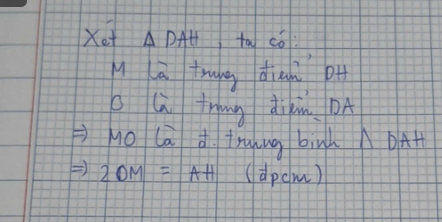 Xét Δ DAH, ta có:
M là trung điểm DH
O là trung điểm DA
=> MO là đ. trung bình Δ DAH
=> 2OM = AH (đpcm)